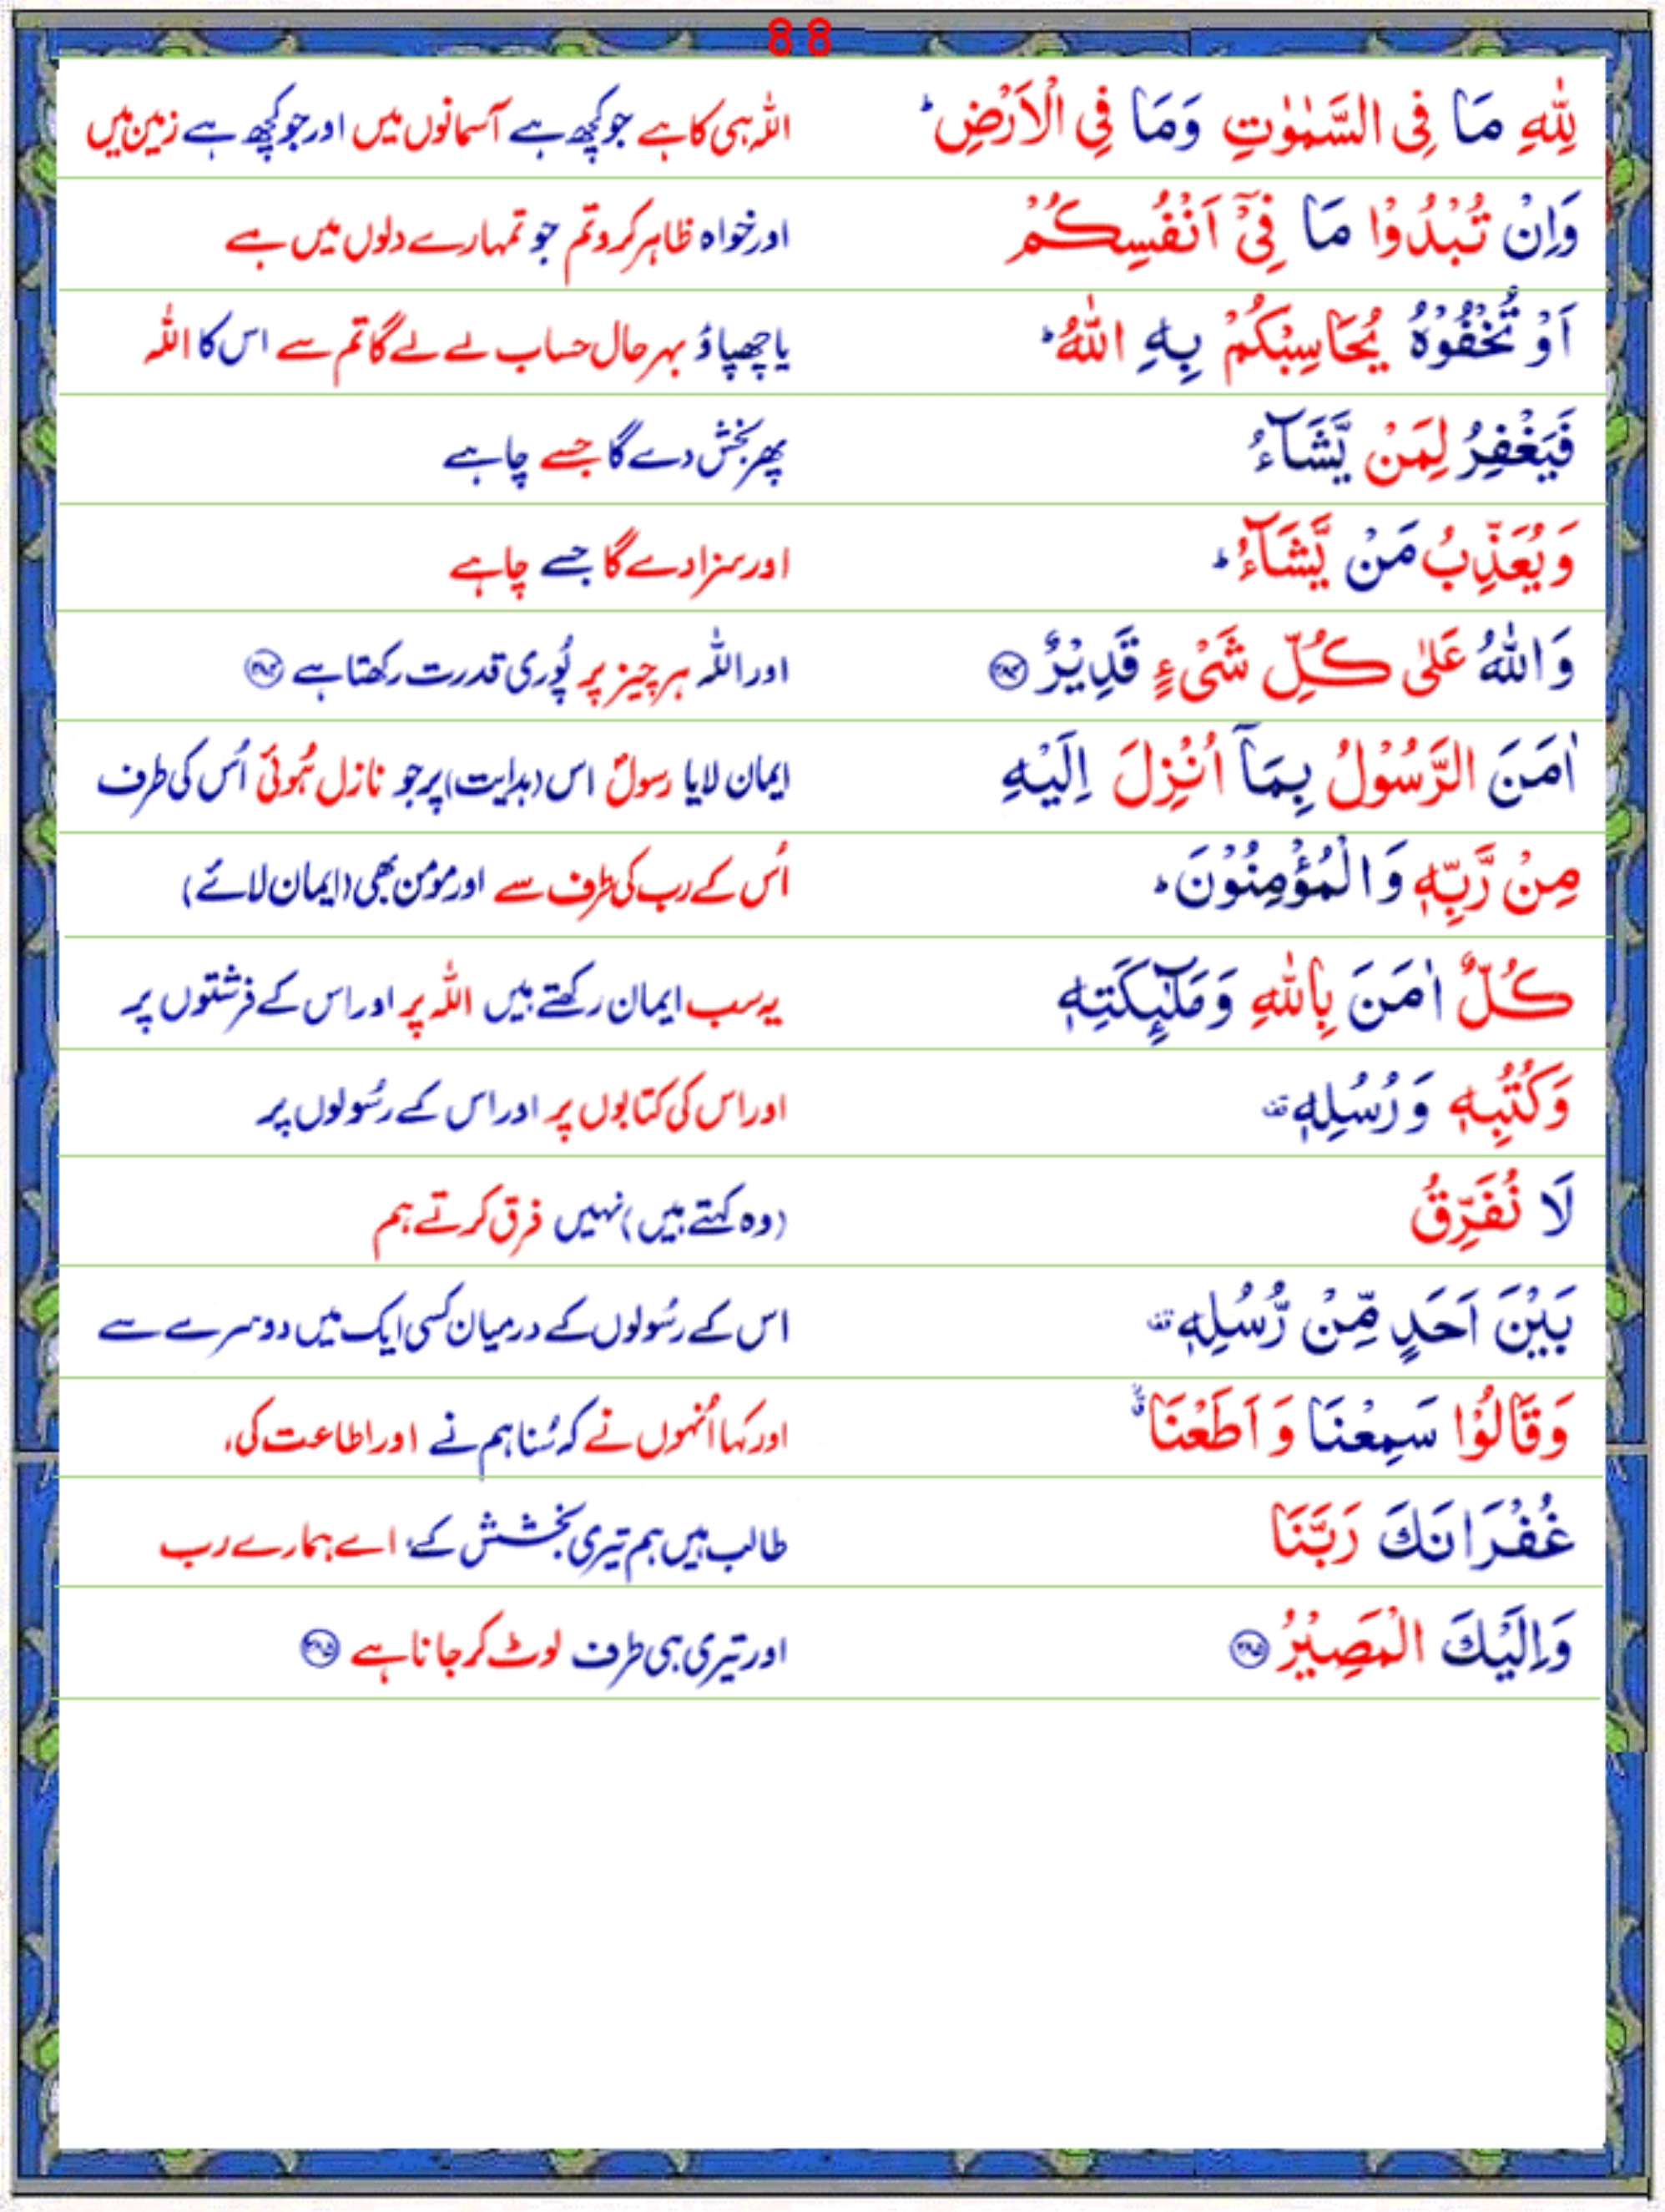 88
لِلّٰهِ مَا فِی السَّمٰوٰتِ وَمَا فِی الْاَرْضِ ؕ اللہ ہی کا ہے جو کچھ ہے آسمانوں میں اور جو کچھ ہے زمین میں
وَاِنْ تُبْدُوْا مَا فِیْۤ اَنْفُسِكُمْ اور خواہ ظاہر کرو تم جو تمہارے دلوں میں ہے
اَوْ تُخْفُوْهُ یُحَاسِبْكُمْ بِهِ اللّٰهُ ؕ یا چھپاؤ بہر حال حساب لے لے گا تم سے اس کا اللہ
فَیَغْفِرُ لِمَنْ یَّشَآءُ پھر بخش دے گا جسے چاہے
وَیُعَذِّبُ مَنْ یَّشَآءُ ؕ اور سزا دے گا جسے چاہے
وَاللّٰهُ عَلٰی كُلِّ شَیْءٍ قَدِیْرٌ ۝۲۸۴ اور اللہ ہر چیز پر پُوری قدرت رکھتا ہے ۝۲۸۴
اٰمَنَ الرَّسُوْلُ بِمَاۤ اُنْزِلَ اِلَیْهِ ایمان لایا رسولؐ اس (ہدایت) پر جو نازل ہُوئی اُس کی طرف
مِنْ رَّبِّهٖ وَالْمُؤْمِنُوْنَ ؕ اُس کے رب کی طرف سے اور مومن بھی (ایمان لائے)
كُلٌّ اٰمَنَ بِاللّٰهِ وَمَلٰٓىِٕكَتِهٖ یہ سب ایمان رکھتے ہیں اللہ پر اور اس کے فرشتوں پر
وَكُتُبِهٖ وَرُسُلِهٖ ۫ اور اس کی کتابوں پر اور اس کے رسُولوں پر
لَا نُفَرِّقُ (وہ کہتے ہیں) نہیں فرق کرتے ہم
بَیْنَ اَحَدٍ مِّنْ رُّسُلِهٖ ۫ اس کے رسُولوں کے درمیان کسی ایک میں دوسرے سے
وَقَالُوْا سَمِعْنَا وَاَطَعْنَا ۗۙ اور کہا اُنہوں نے کہ سُنا ہم نے اور اطاعت کی،
غُفْرَانَكَ رَبَّنَا طالب ہیں ہم تیری بخشش کے، اے ہمارے رب
وَاِلَیْكَ الْمَصِیْرُ ۝۲۸۵ اور تیری ہی طرف لوٹ کر جانا ہے ۝۲۸۵